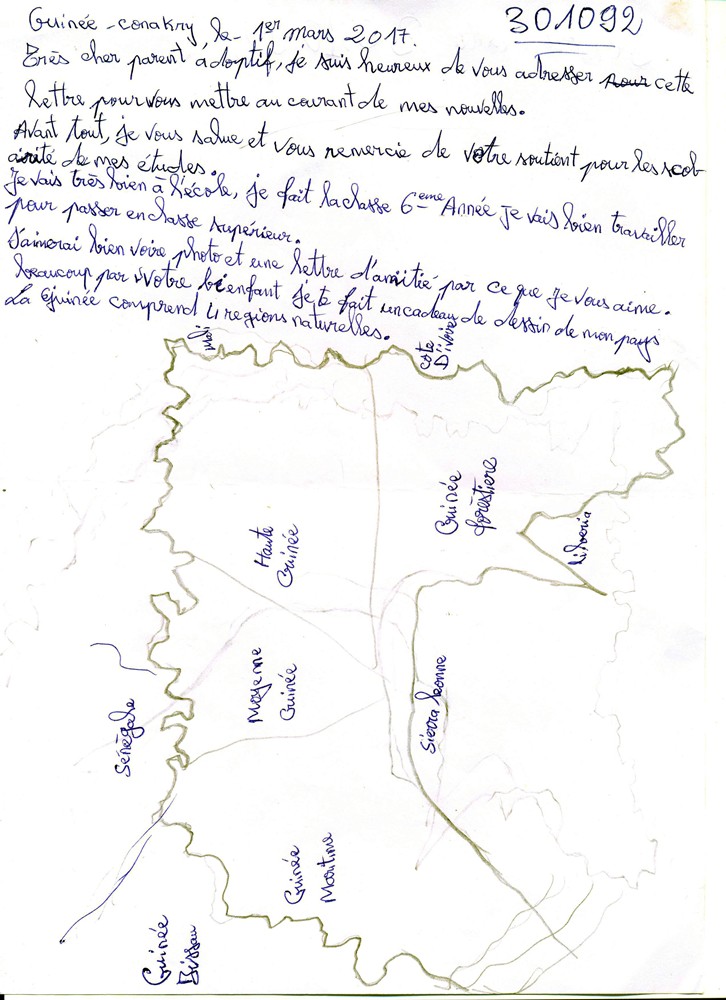 Guinée-conakry, le- 1er mars 2017.
301092
Très cher parent adoptif, je suis heureux de vous adresser pour cette
lettre pour vous mettre au courant de mes nouvelles.
Avant tout, je vous salue et vous remercie de votre soutient pour les scol
arité de mes études.
Je vais très bien à l'école, je fait la classe 6eme Année je vais bien travailler
pour passer en classe supérieur.
J'aimerai bien voire photo et une lettre d'amitié par ce que je vous aime.
beaucoup par votre bienfant je te fait un cadeau de dessin de mon pays
La Guinée comprend 4 regions naturelles.
Mali
cote
Divoire
Guinée
forestiere
Liberia
Haute
Guinée
Moyenne
Guinée
Sierra leonne
Sénégale
Guinée
Maritime
Guinée
Bissau